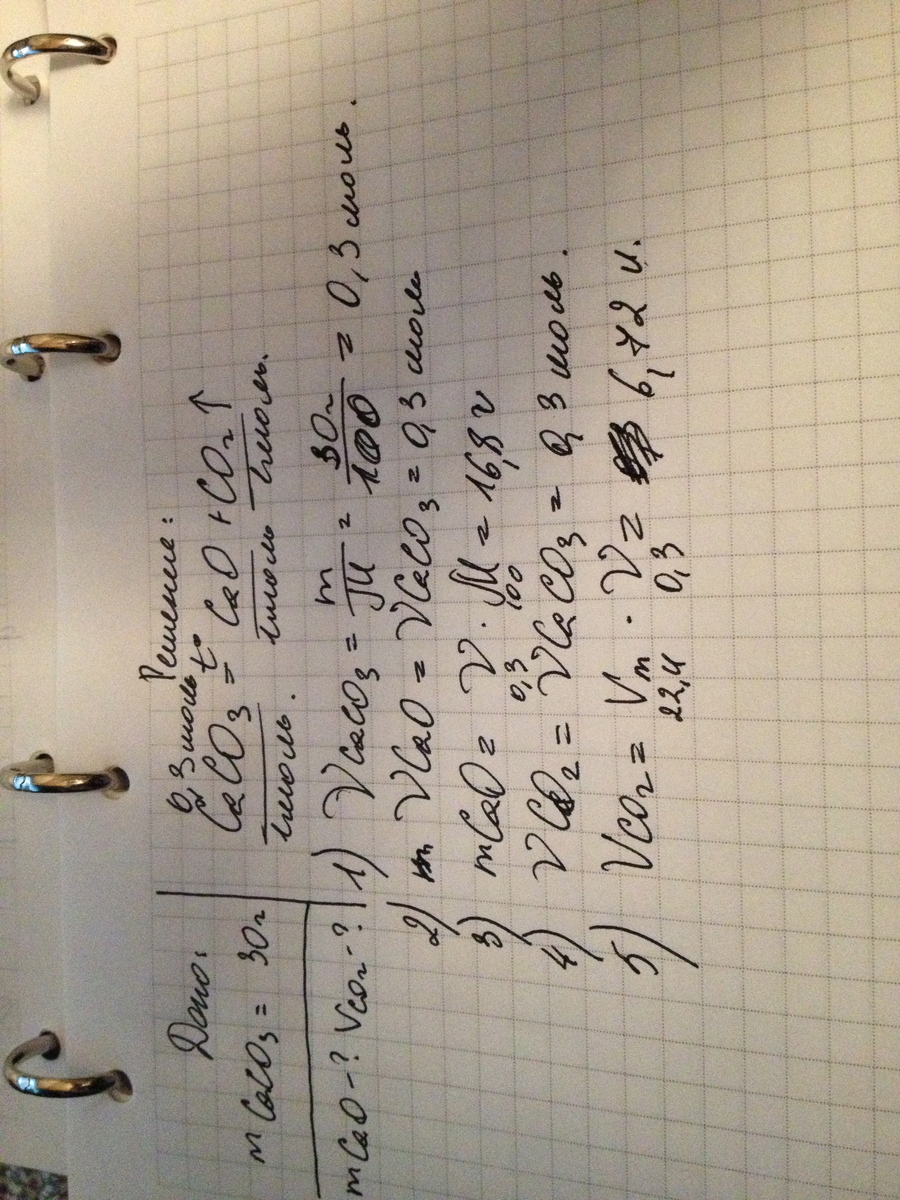 Дано:
m CaCO3 = 30г
m CaO - ? VCO2 - ?
Решение:
0,3 моль
CaCO3 =t° CaO + CO2↑
1моль. 1моль 1моль.
1) νCaCO3 = m/M = 30г/100 = 0,3 моль.
2) m νCaO = νCaCO3 = 0,3 моль
3) mCaO = ν · M = 16,8 г
0,3 100
4) νCO2 = νCaCO3 = 0,3 моль.
5) VCO2 = Vm · ν = 6,72 л.
22,4 0,3